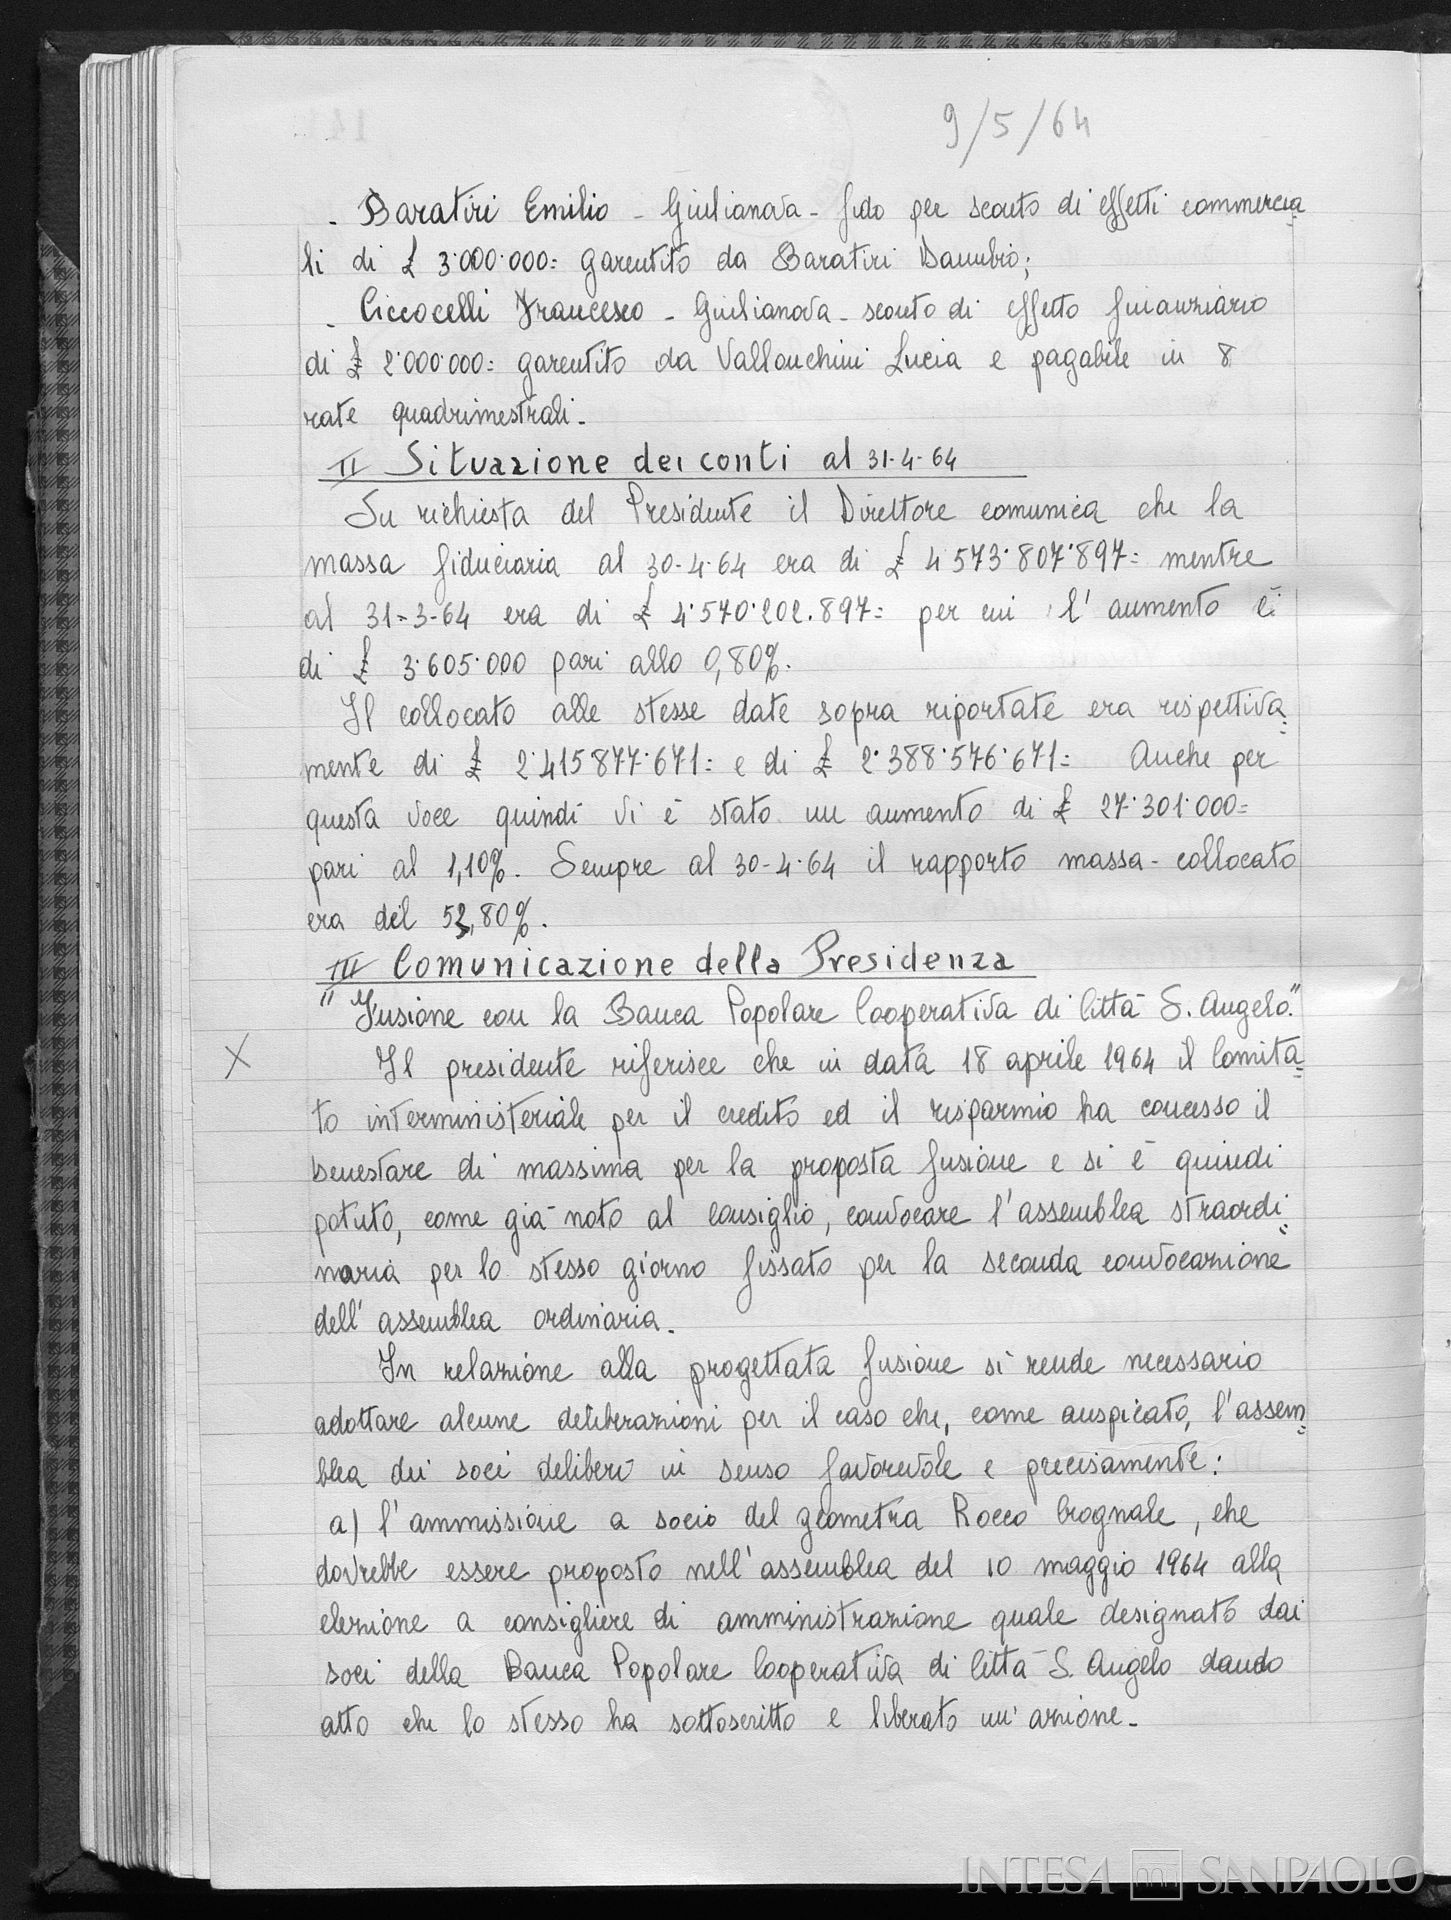 9/5/64
- Baratiri Emilio - Giulianova - fido per sconto di effetti commercia=
li di £ 3.000.000= garentito da Baratiri Danubio;
- Ciccocelli Francesco - Giulianova - sconto di effetto finanziario
di £ 2.000.000= garentito da Vallonchini Lucia e pagabile in 8
rate quadrimestrali.
II Situazione dei conti al 31-4-64
Su richiesta del Presidente il Direttore comunica che la
massa fiduciaria al 30-4-64 era di £ 4.573.807.897= mentre
al 31-3-64 era di £ 4.570.202.897= per cui l'aumento è
di £ 3.605.000 pari allo 0,80%.
Il collocato alle stesse date sopra riportate era rispettiva=
mente di £ 2.415.877.671= e di £ 2.388.576.671= Anche per
questa voce quindi vi è stato un aumento di £ 27.301.000=
pari al 1,10%. Sempre al 30-4-64 il rapporto massa-collocato
era del 52,80%.
III Comunicazione della Presidenza
"Fusione con la Banca Popolare Cooperativa di Città S. Angelo."
X Il presidente riferisce che in data 18 aprile 1964 il Comita=
to interministeriale per il credito ed il risparmio ha concesso il
benestare di massima per la proposta fusione e si è quindi
potuto, come già noto al Consiglio, convocare l'assemblea straordi=
naria per lo stesso giorno fissato per la seconda convocazione
dell'assemblea ordinaria.
In relazione alla progettata fusione si rende necessario
adottare alcune deliberazioni per il caso che, come auspicato, l'assem=
blea dei soci deliberi in senso favorevole e precisamente:
a) l'ammissione a socio del geometra Rocco Crognale, che
dovrebbe essere proposto nell'assemblea del 10 maggio 1964 alla
elezione a consigliere di amministrazione quale designato dai
soci della Banca Popolare Cooperativa di Città S. Angelo dando
atto che lo stesso ha sottoscritto e liberato un'azione.
INTESA SANPAOLO